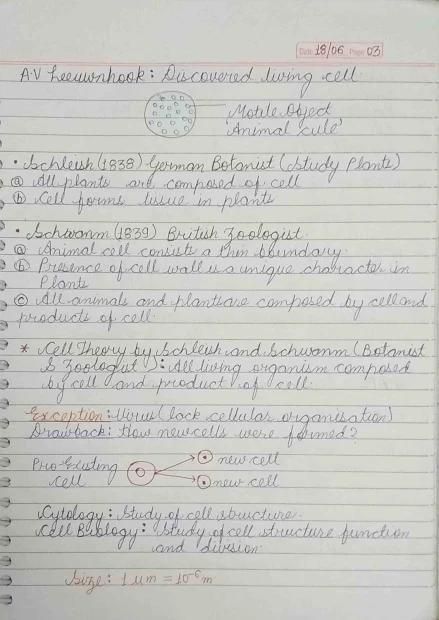 Date 18/06 Page 03
A.V Leeuwnhook: Discovered living cell
Motile Object
'Animal cule'
• Schleish (1838) German Botanist (Study Plants)
ⓐ All plants are composed of cell
ⓑ Cell forms tissue in plants
• Schwanm (1839) British Zoologist
ⓐ Animal cell consists a thin boundary.
ⓑ Presence of cell wall is a unique character in
Plants
ⓒ All animals and plants are composed by cell and
products of cell.
* Cell Theory by Schleish and Schwanm (Botanist
& Zoologist): All living organism composed
by cell and product of cell.
Exception: Virus (lack cellular organisation)
Drawback: How new cells were formed?
Pre-Existing
cell
new cell
new cell
Cytology: Study of cell structure.
Cell Biology: Study of cell structure function
and division.
Size: 1 μm = 10⁻⁶ m